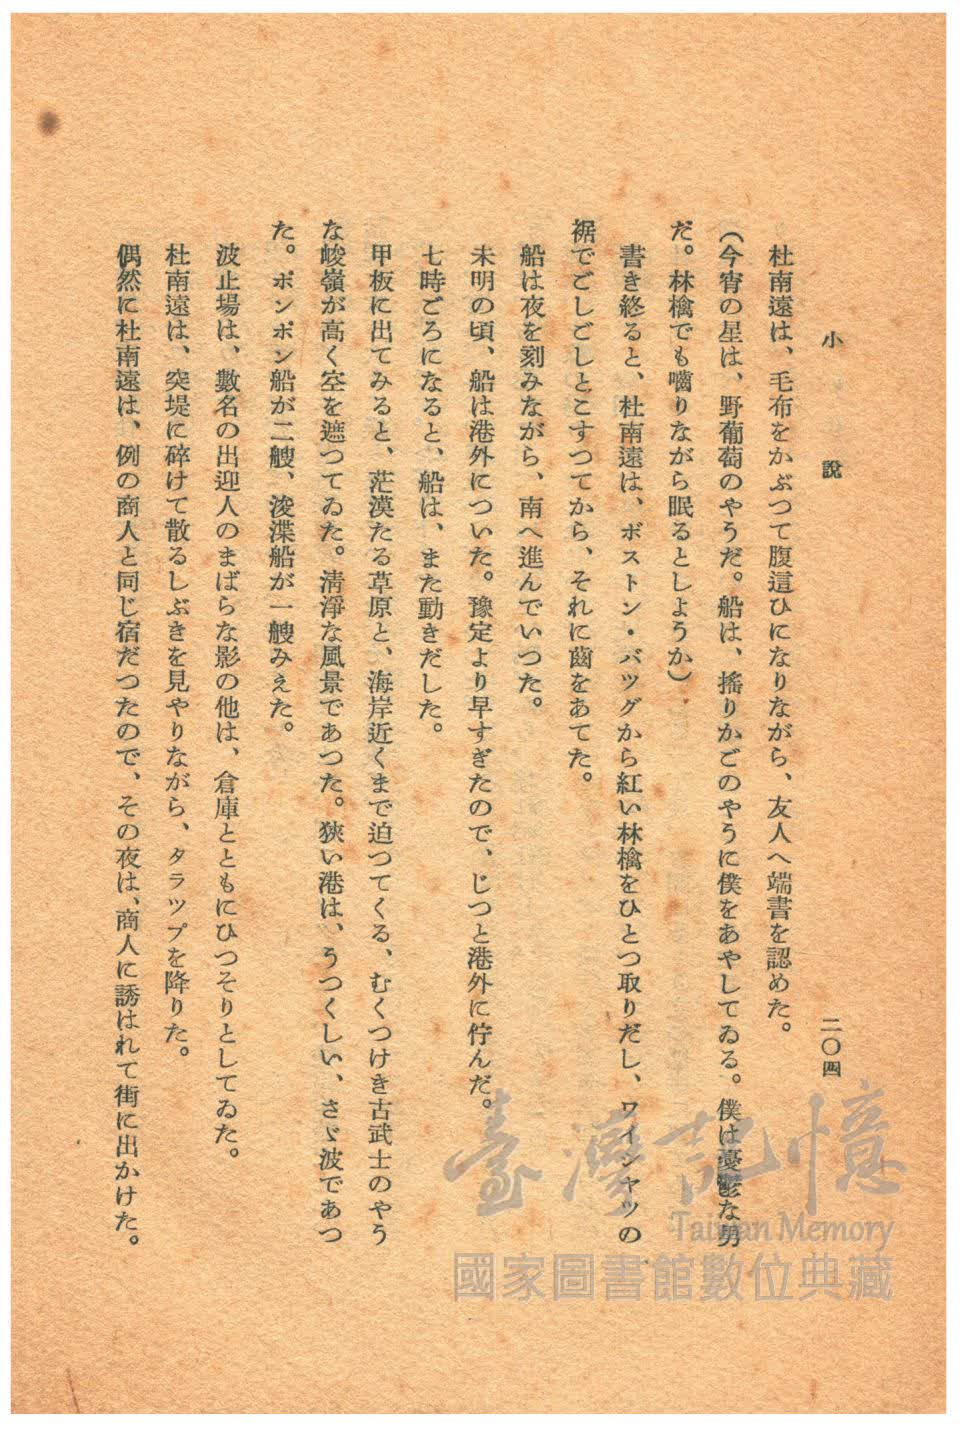 小說
二〇四
杜南遠は、毛布をかぶつて腹這ひになりながら、友人へ端書を認めた。
(今宵の星は、野葡萄のやうだ。船は、搖りかごのやうに僕をあやしてゐる。僕は憂鬱な男
だ。林檎でも嚙りながら眠るとしようか)
書き終ると、杜南遠は、ボストン・バツグから紅い林檎をひとつ取りだし、ワイシヤツの
裾でごしごしとこすつてから、それに齒をあてた。
船は夜を刻みながら、南へ進んでいつた。
未明の頃、船は港外についた。豫定より早すぎたので、じつと港外に佇んだ。
七時ごろになると、船は、また動きだした。
甲板に出てみると、茫漠たる草原と、海岸近くまで迫つてくる、むくつけき古武士のやう
な峻嶺が高く空を遮つてゐた。淸淨な風景であつた。狹い港は、うつくしい、さゞ波であつ
た。ポンポン船が二艘、浚渫船が一艘みえた。
波止場は、數名の出迎人のまばらな影の他は、倉庫とともにひつそりとしてゐた。
杜南遠は、突堤に碎けて散るしぶきを見やりながら、タラツプを降りた。
偶然に杜南遠は、例の商人と同じ宿だつたので、その夜は、商人に誘はれて街に出かけた。
臺灣記憶
Taiwan Memory
國家圖書館數位典藏